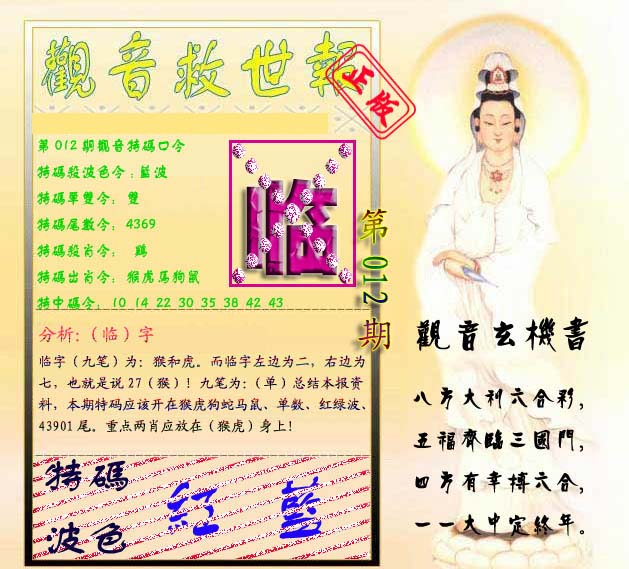 觀音救世報
正版
第012期觀音特碼口令
特碼殺波色令：藍波
特碼單雙令：雙
特碼尾數令：4369
特碼殺肖令：鷄
特碼出肖令：猴虎馬狗鼠
特中碼令：10 14 22 30 35 38 42 43
临
第012期
分析:（临）字
临字（九笔）为：猴和虎。而临字左边为二，右边为
七，也就是说27（猴）！九笔为：（单）总结本报资
料，本期特码应该开在猴虎狗蛇马鼠、单数、红绿波、
43901尾。重点两肖应放在（猴虎）身上！
特碼
波色
紅 藍
觀音玄機書
八方大利六合彩，
五福齊臨三國門，
四方有幸搏六合，
一一大中定終年。